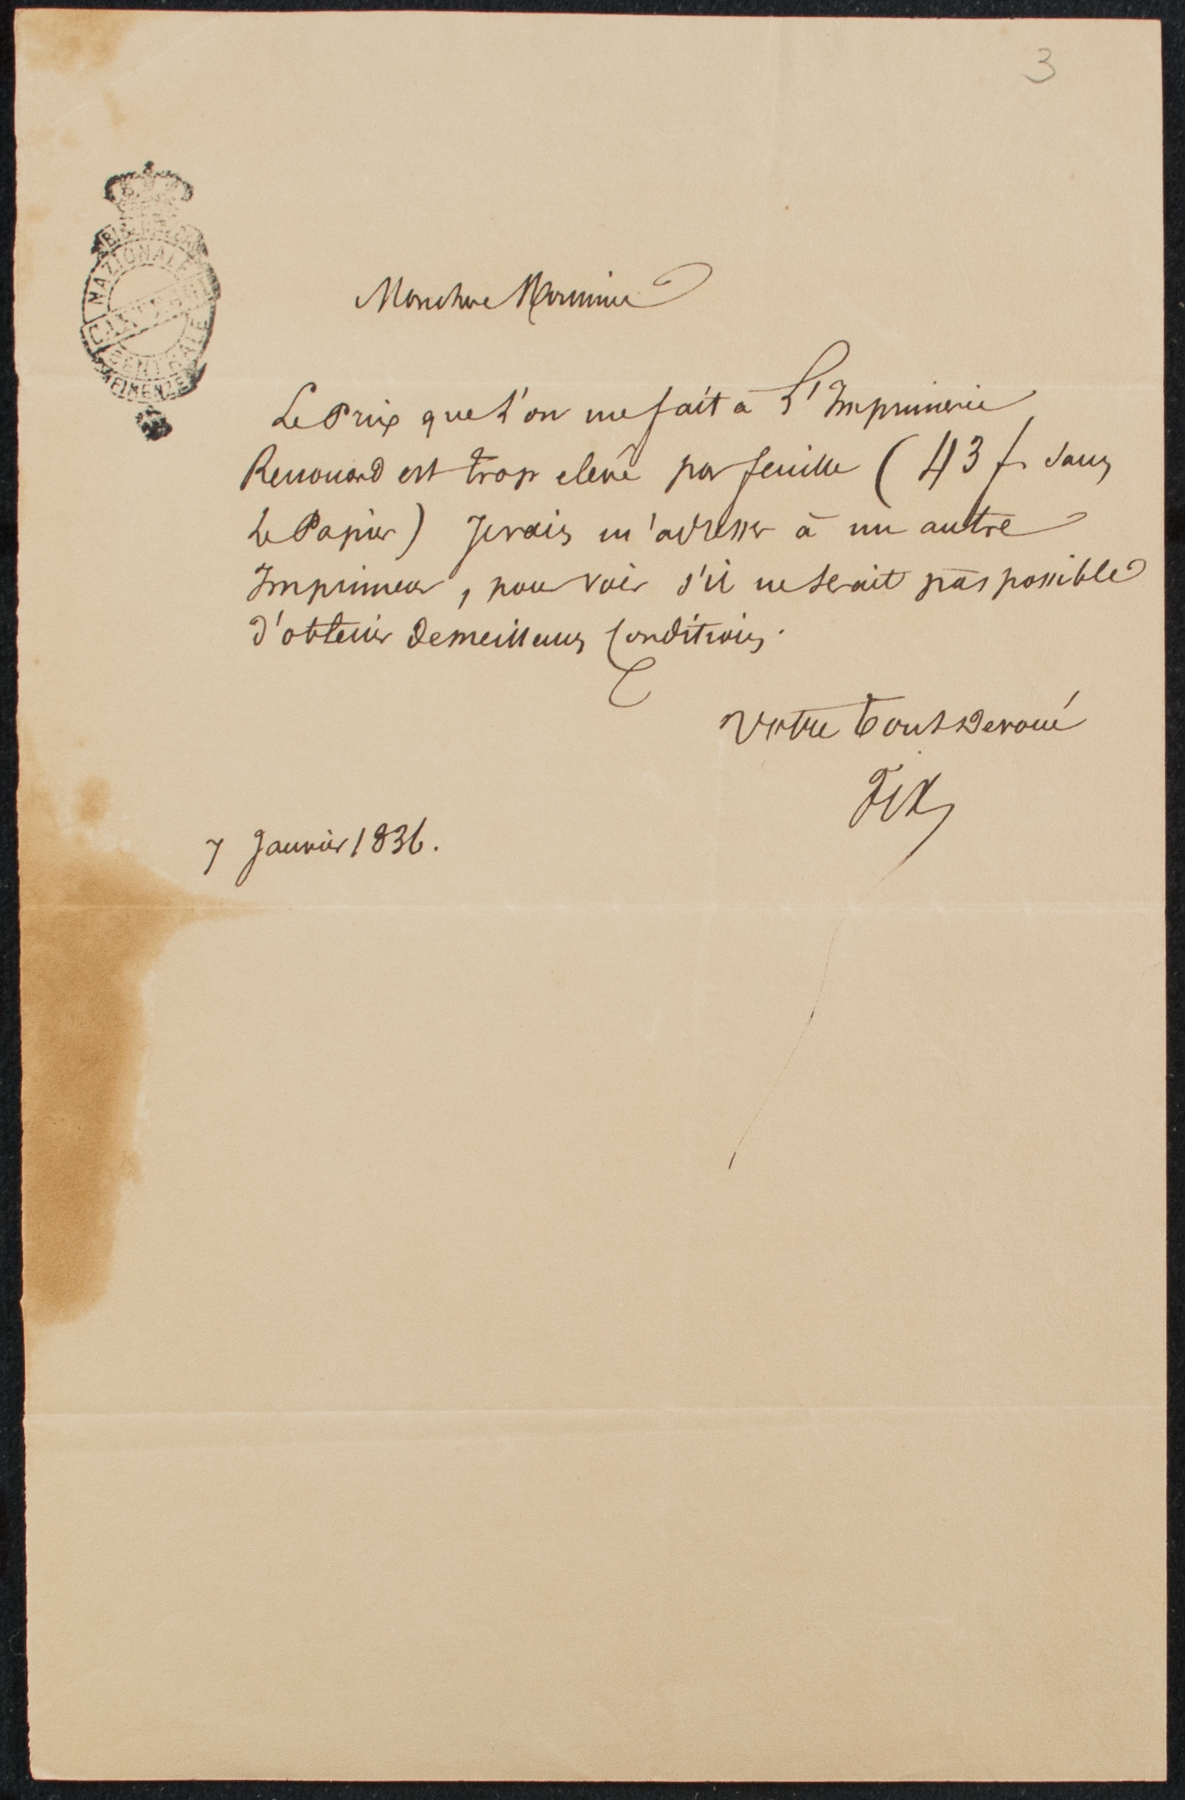 3
BIBLIOTECA
NAZIONALE
CENTRALE
FIRENZE
Mon cher Monsieur
Le Prix que l'on me fait à L'Imprimerie
Renouard est trop elevé par feuille (43 f. sans
le Papier) Je vais m'adresser à un autre
Imprimeur, pour voir s'il ne serait pas possible
d'obtenir de meilleures Conditions.
Votre tout Devoué
Fix
7 Janvier 1836.